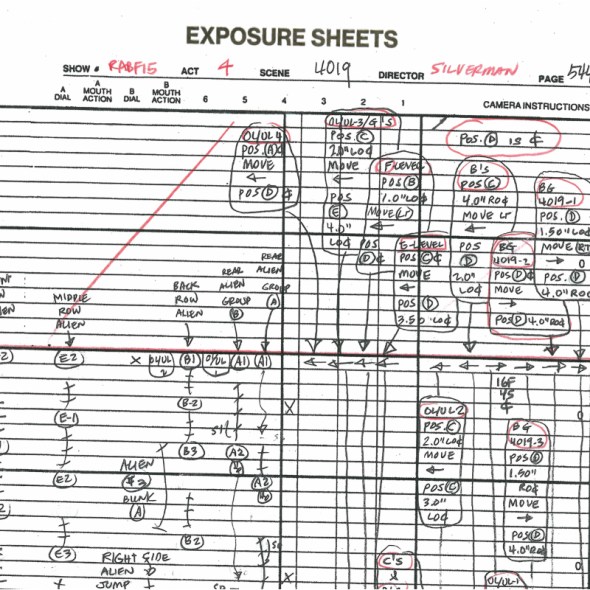 EXPOSURE SHEETS
SHOW # RABF15 ACT 4 SCENE 4019 DIRECTOR SILVERMAN PAGE 544
A DIAL
A MOUTH ACTION
B DIAL
B MOUTH ACTION
6 5 4 3 2 1
CAMERA INSTRUCTIONS
POS. (D) IS ₵
OL/UL4
POS. (A)₵
MOVE
←
POS (D) ₵
OL/UL-3/G'S
POS. (C)
2.0" LO₵
MOVE
←
POS
(E)
4.0"
LO₵
F-LEVEL
POS (B)
1.0" LO₵
MOVE (LT)
←
POS
(D)₵
E-LEVEL
POS (C)₵
MOVE
←
POS (D)
3.50" LO₵
B'S
POS (C)
4.0" RO₵
MOVE LT
←
POS
(D)
2.0"
LO₵
BG
4019-2
POS (D)₵
MOVE
→
POS (D) 4.0" RO₵
BG
4019-1
POS. (D)
1.50" LO₵
MOVE (RT)
→
POS. (D)
4.0" RO₵
MIDDLE
ROW
ALIEN
BACK
ROW
ALIEN
REAR
ALIEN
GROUP
(B)
REAR
ALIEN
GROUP
(A)
(E2) X (B1) (A1) (A1)
16F
45
₵
(B-2) X
(E-1)
(B3) (A2)
(E2) (A2)
ALIEN
#3
BLINK
(A)
OL/UL-2
POS. (C)
2.0" LO₵
MOVE
←
POS (C)
3.0"
LO₵
BG
4019-3
POS (D)
1.50"
RO₵
MOVE
→
POS (D)
4.0" RO₵
(B2)
(E3)
RIGHT SIDE
ALIEN
JUMP
X
C'S
OL/UL-1